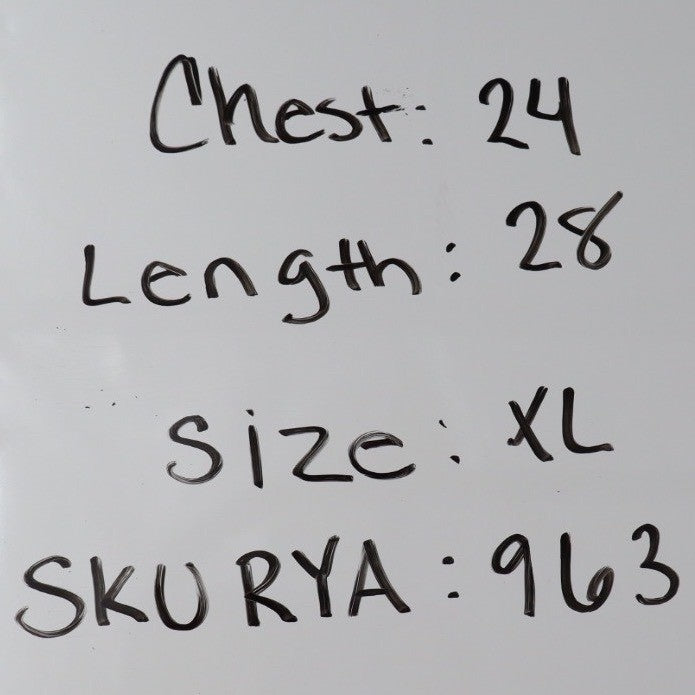 Chest: 24
Length: 28
Size: XL
SKU RYA: 963